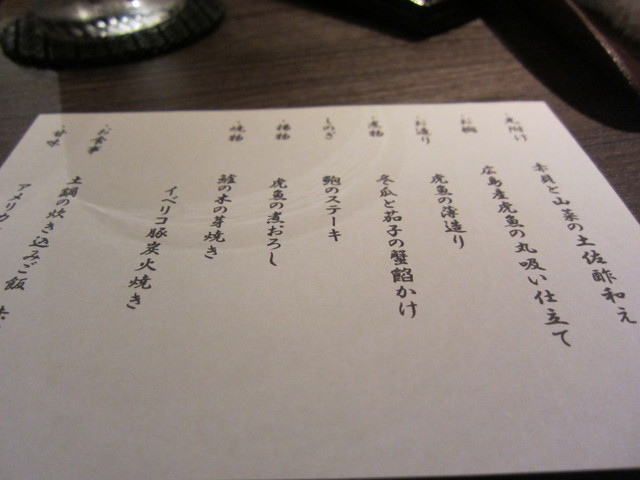 先附け
赤貝と山菜の土佐酢和え
・お椀
広島産虎魚の丸吸い仕立て
・お造り
虎魚の薄造り
・煮物
冬瓜と茄子の蟹餡かけ
しのぎ
鮑のステーキ
・揚物
虎魚の煮おろし
・焼物
鱧の木の芽焼き
イベリコ豚炭火焼き
・お食事
土鍋の炊き込みご飯
甘味
アメリカ